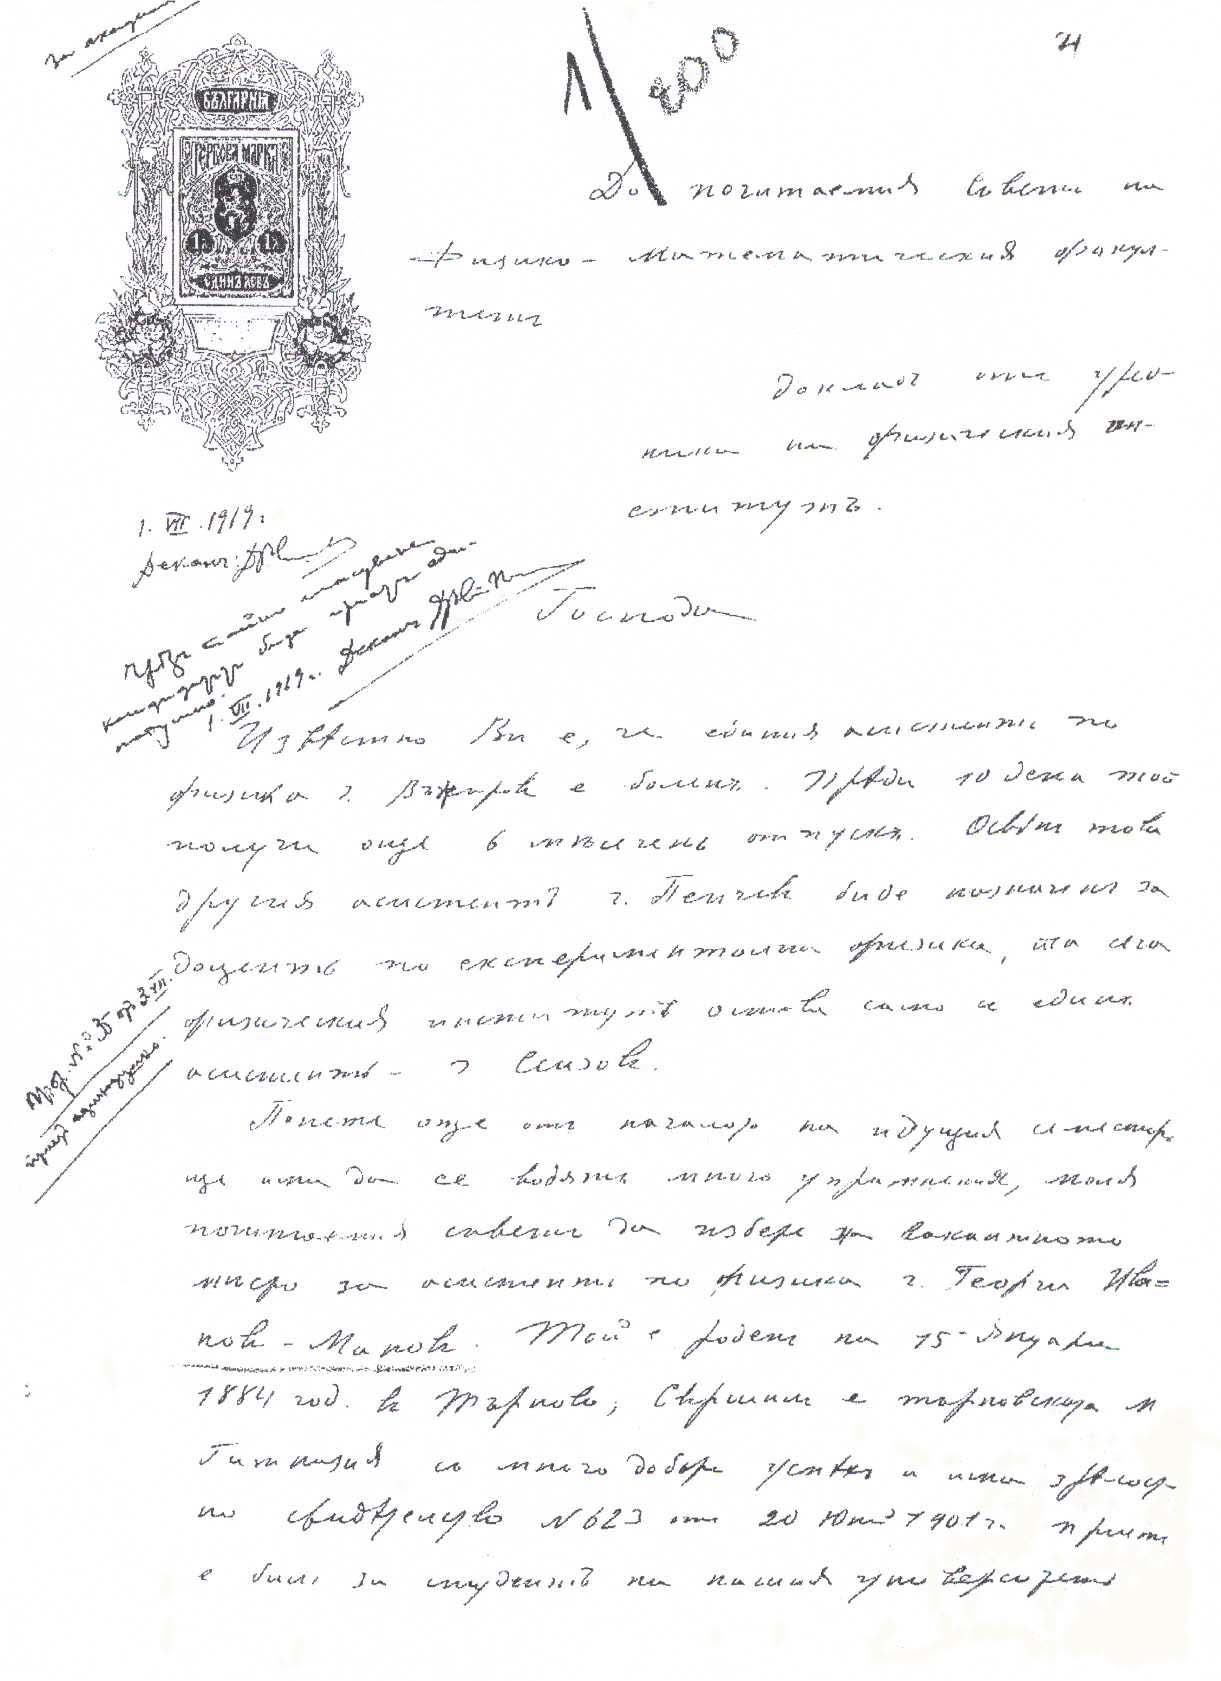 1/200
БЪЛГАРИЯ
ГЕРБОВА МАРКА
1 1
ЕДИНЪ ЛЕВЪ
До почитаемия Съветъ на
Физико-Математическия факул-
тетъ
Докладъ отъ уредника
на физическия ин-
ститутъ.
1. VII. 1919 г.
Деканъ:
Господа
Чрезъ тайно гласуване
кандидатът биде приет едно-
1. VII. 1919 г. Деканъ
Известно Ви е, че единия асистентъ по
физика г. е боленъ. Прѣди 10 дена той
получи още 6 месеченъ отпускъ. Освѣнъ това
другия асистентъ г. Пенчев биде назначенъ за
доцентъ по експериментална физика, та сега
физическия институтъ остава само с единъ
асистентъ - г.
Понеже още отъ началото на идущия семестър
ще има да се водятъ много упражнения, моля
почитаемия съветъ да избере на вакантното
място за асистентъ по физика г. Георги Ива-
нов-Манов. Той е роденъ на 15 Януари
1884 год. в Търново; Свършилъ е търновската м
Гимназия с много добъръ успѣхъ и има зрѣлост-
но свидѣтелство N 623 отъ 20 Юний 1901 г. Приетъ
е билъ за студентъ на нашия университетъ